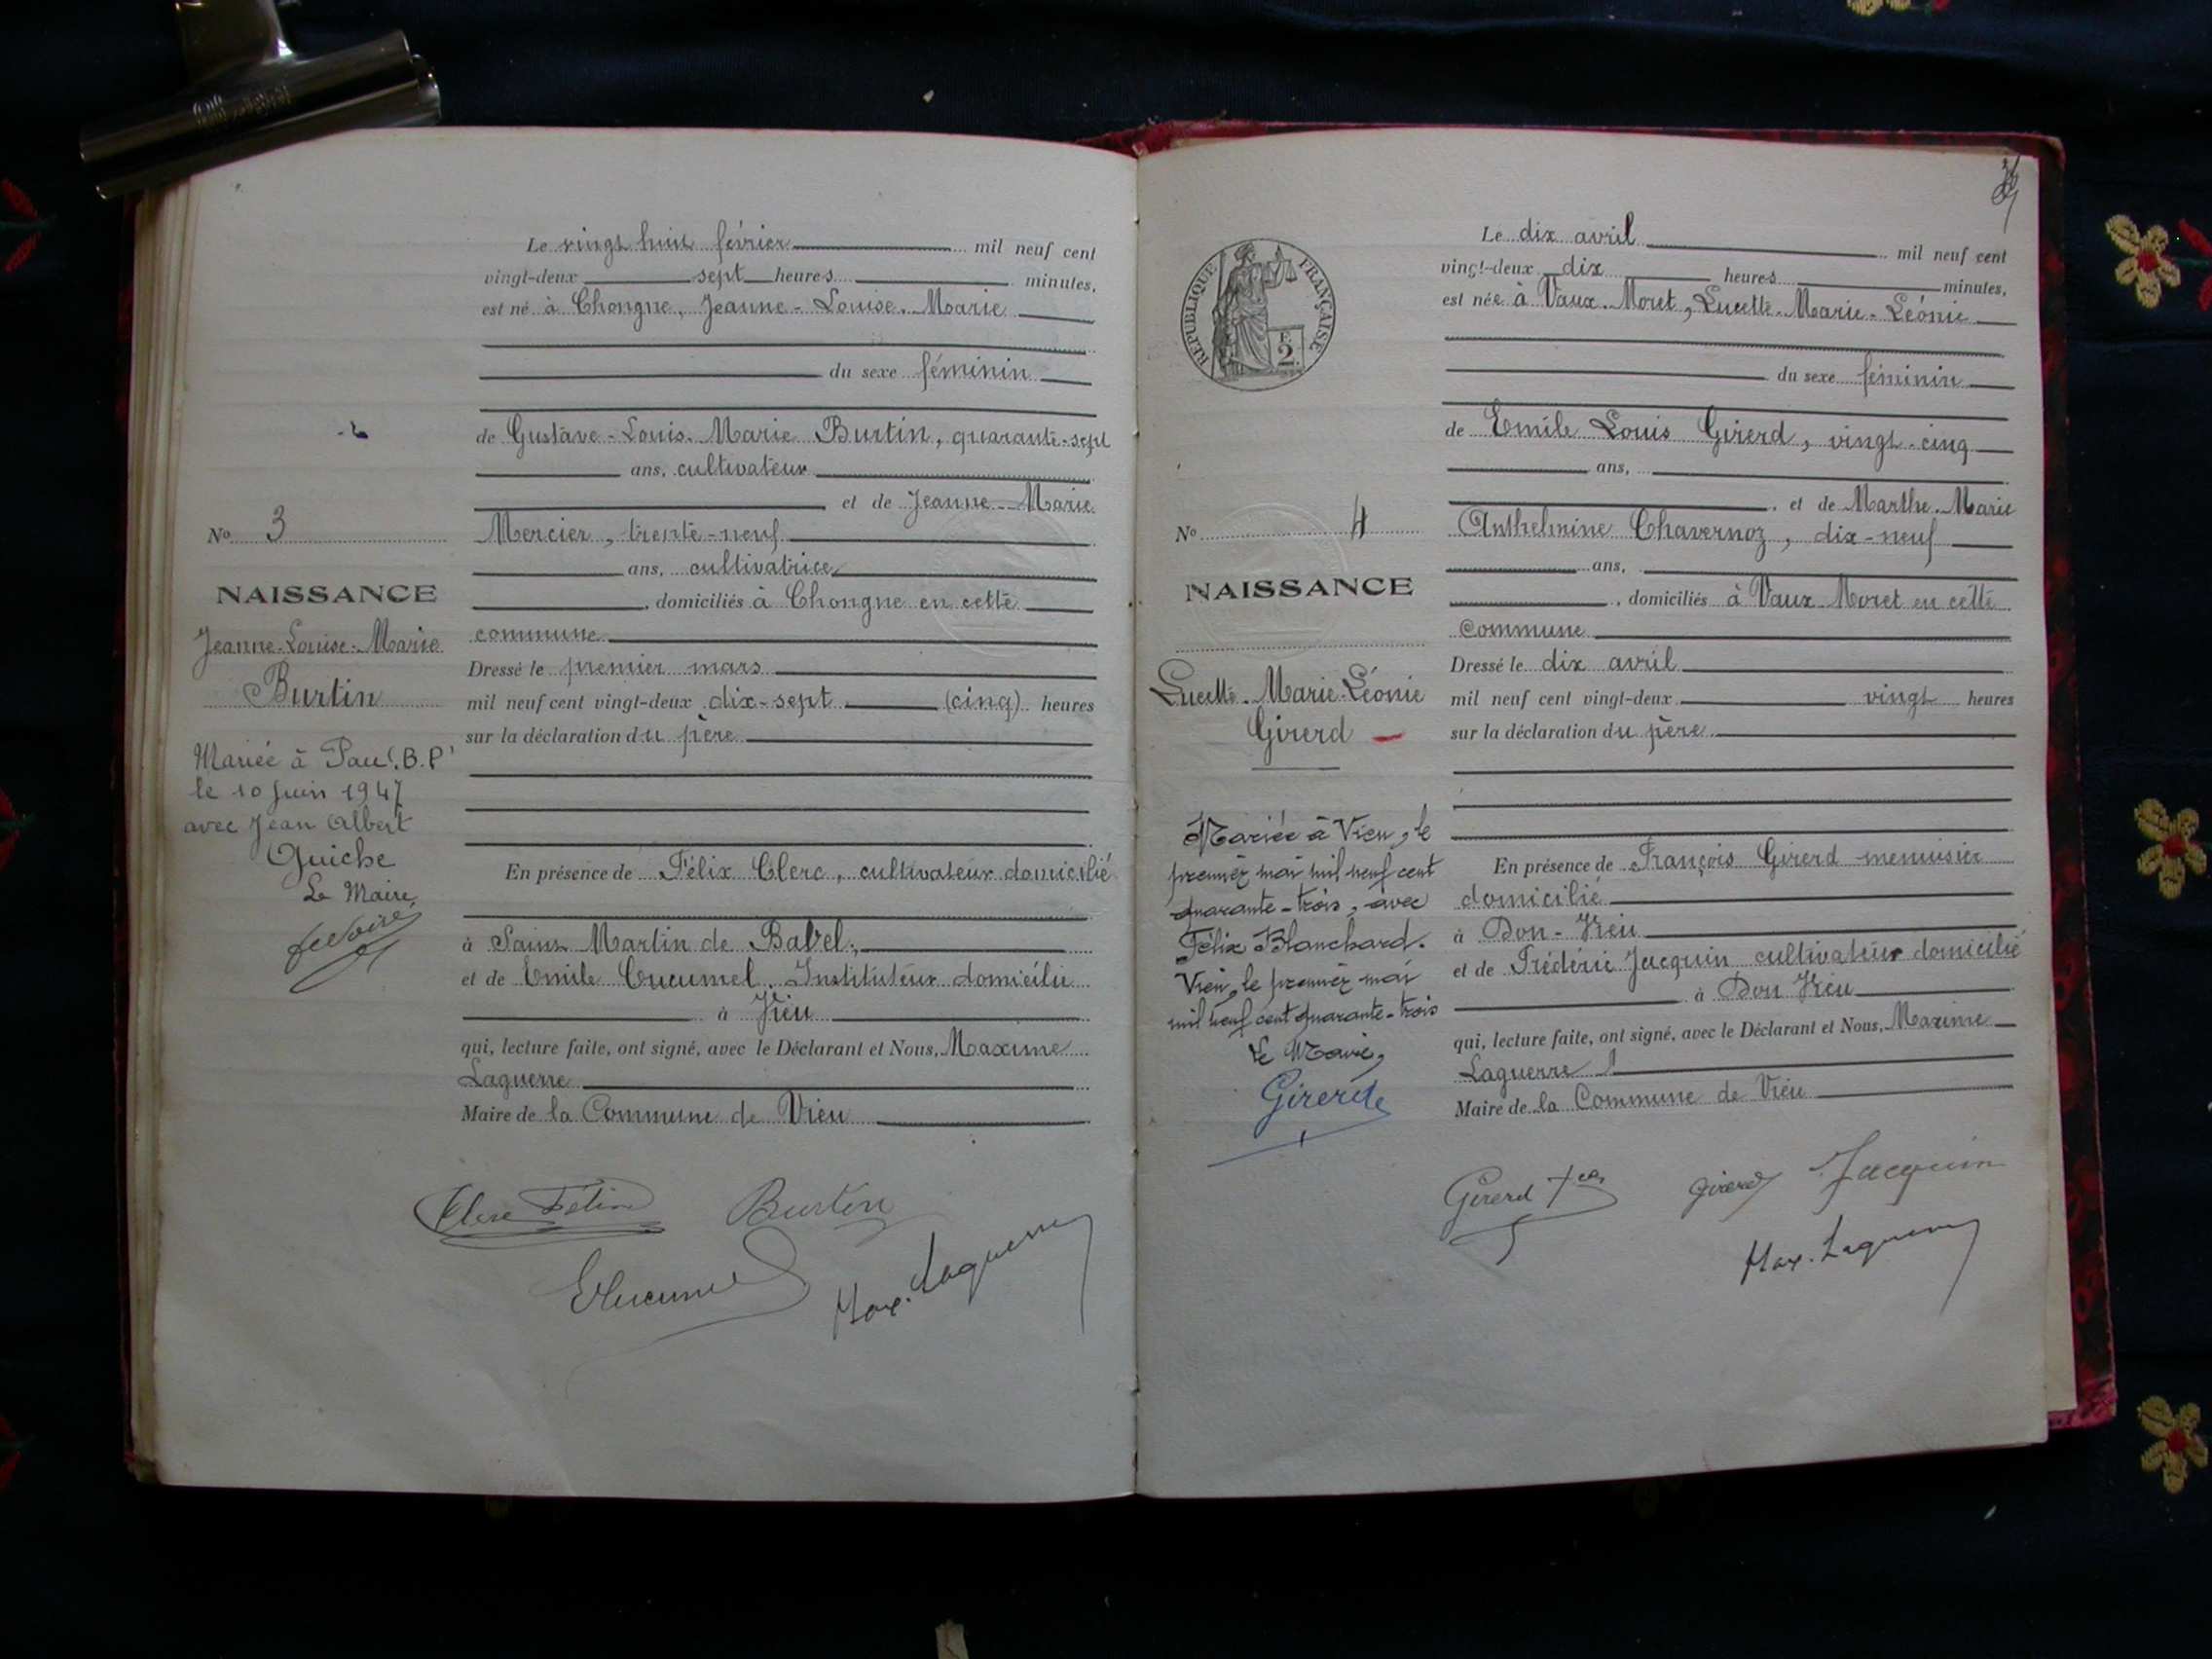 Le vingt huit février mil neuf cent
vingt-deux sept heures minutes,
est né à Chongne, Jeanne-Louise-Marie
du sexe féminin
de Gustave-Louis-Marie Burtin, quarante-sept
ans, cultivateur
et de Jeanne-Marie
Mercier, trente-neuf
ans, cultivatrice
, domiciliés à Chongne en cette
commune
Dressé le premier mars
mil neuf cent vingt-deux dix-sept (cinq) heures
sur la déclaration du père
En présence de Félix Clerc, cultivateur domicilié
à Saint Martin de Bavel,
et de Emile Cucumel, Instituteur domicilié
à Vieu
qui, lecture faite, ont signé, avec le Déclarant et Nous, Maxime
Laguerre
Maire de la Commune de Vieu
Clerc Félix Burtin
ECucumel Max. Laguerre
No 3
NAISSANCE
Jeanne-Louise-Marie
Burtin
Mariée à Pau (B.P)
le 10 juin 1947
avec Jean Albert
Guiche
Le Maire,
RÉPUBLIQUE FRANÇAISE
F.
2
Le dix avril mil neuf cent
vingt-deux dix heures minutes,
est née à Vaux-Moret, Lucette-Marie-Léonie
du sexe féminin
de Emile Louis Girerd, vingt-cinq
ans,
, et de Marthe-Marie
Anthelmine Chavernoz, dix-neuf
ans,
, domiciliés à Vaux-Moret en cette
commune
Dressé le dix avril
mil neuf cent vingt-deux vingt heures
sur la déclaration du père
En présence de François Girerd menuisier
domicilié
à Don-Vieu
et de Frédéric Jacquin cultivateur domicilié
à Don Vieu
qui, lecture faite, ont signé, avec le Déclarant et Nous, Maxime
Laguerre
Maire de la Commune de Vieu
Girerd fçois Girerd Jacquin
Max. Laguerre
No 4
NAISSANCE
Lucette-Marie-Léonie
Girerd
Mariée à Vieu, le
premier mai mil neuf cent
quarante-trois, avec
Félix Blanchard.
Vieu, le premier mai
mil neuf cent quarante-trois
Le Maire,
Girerd